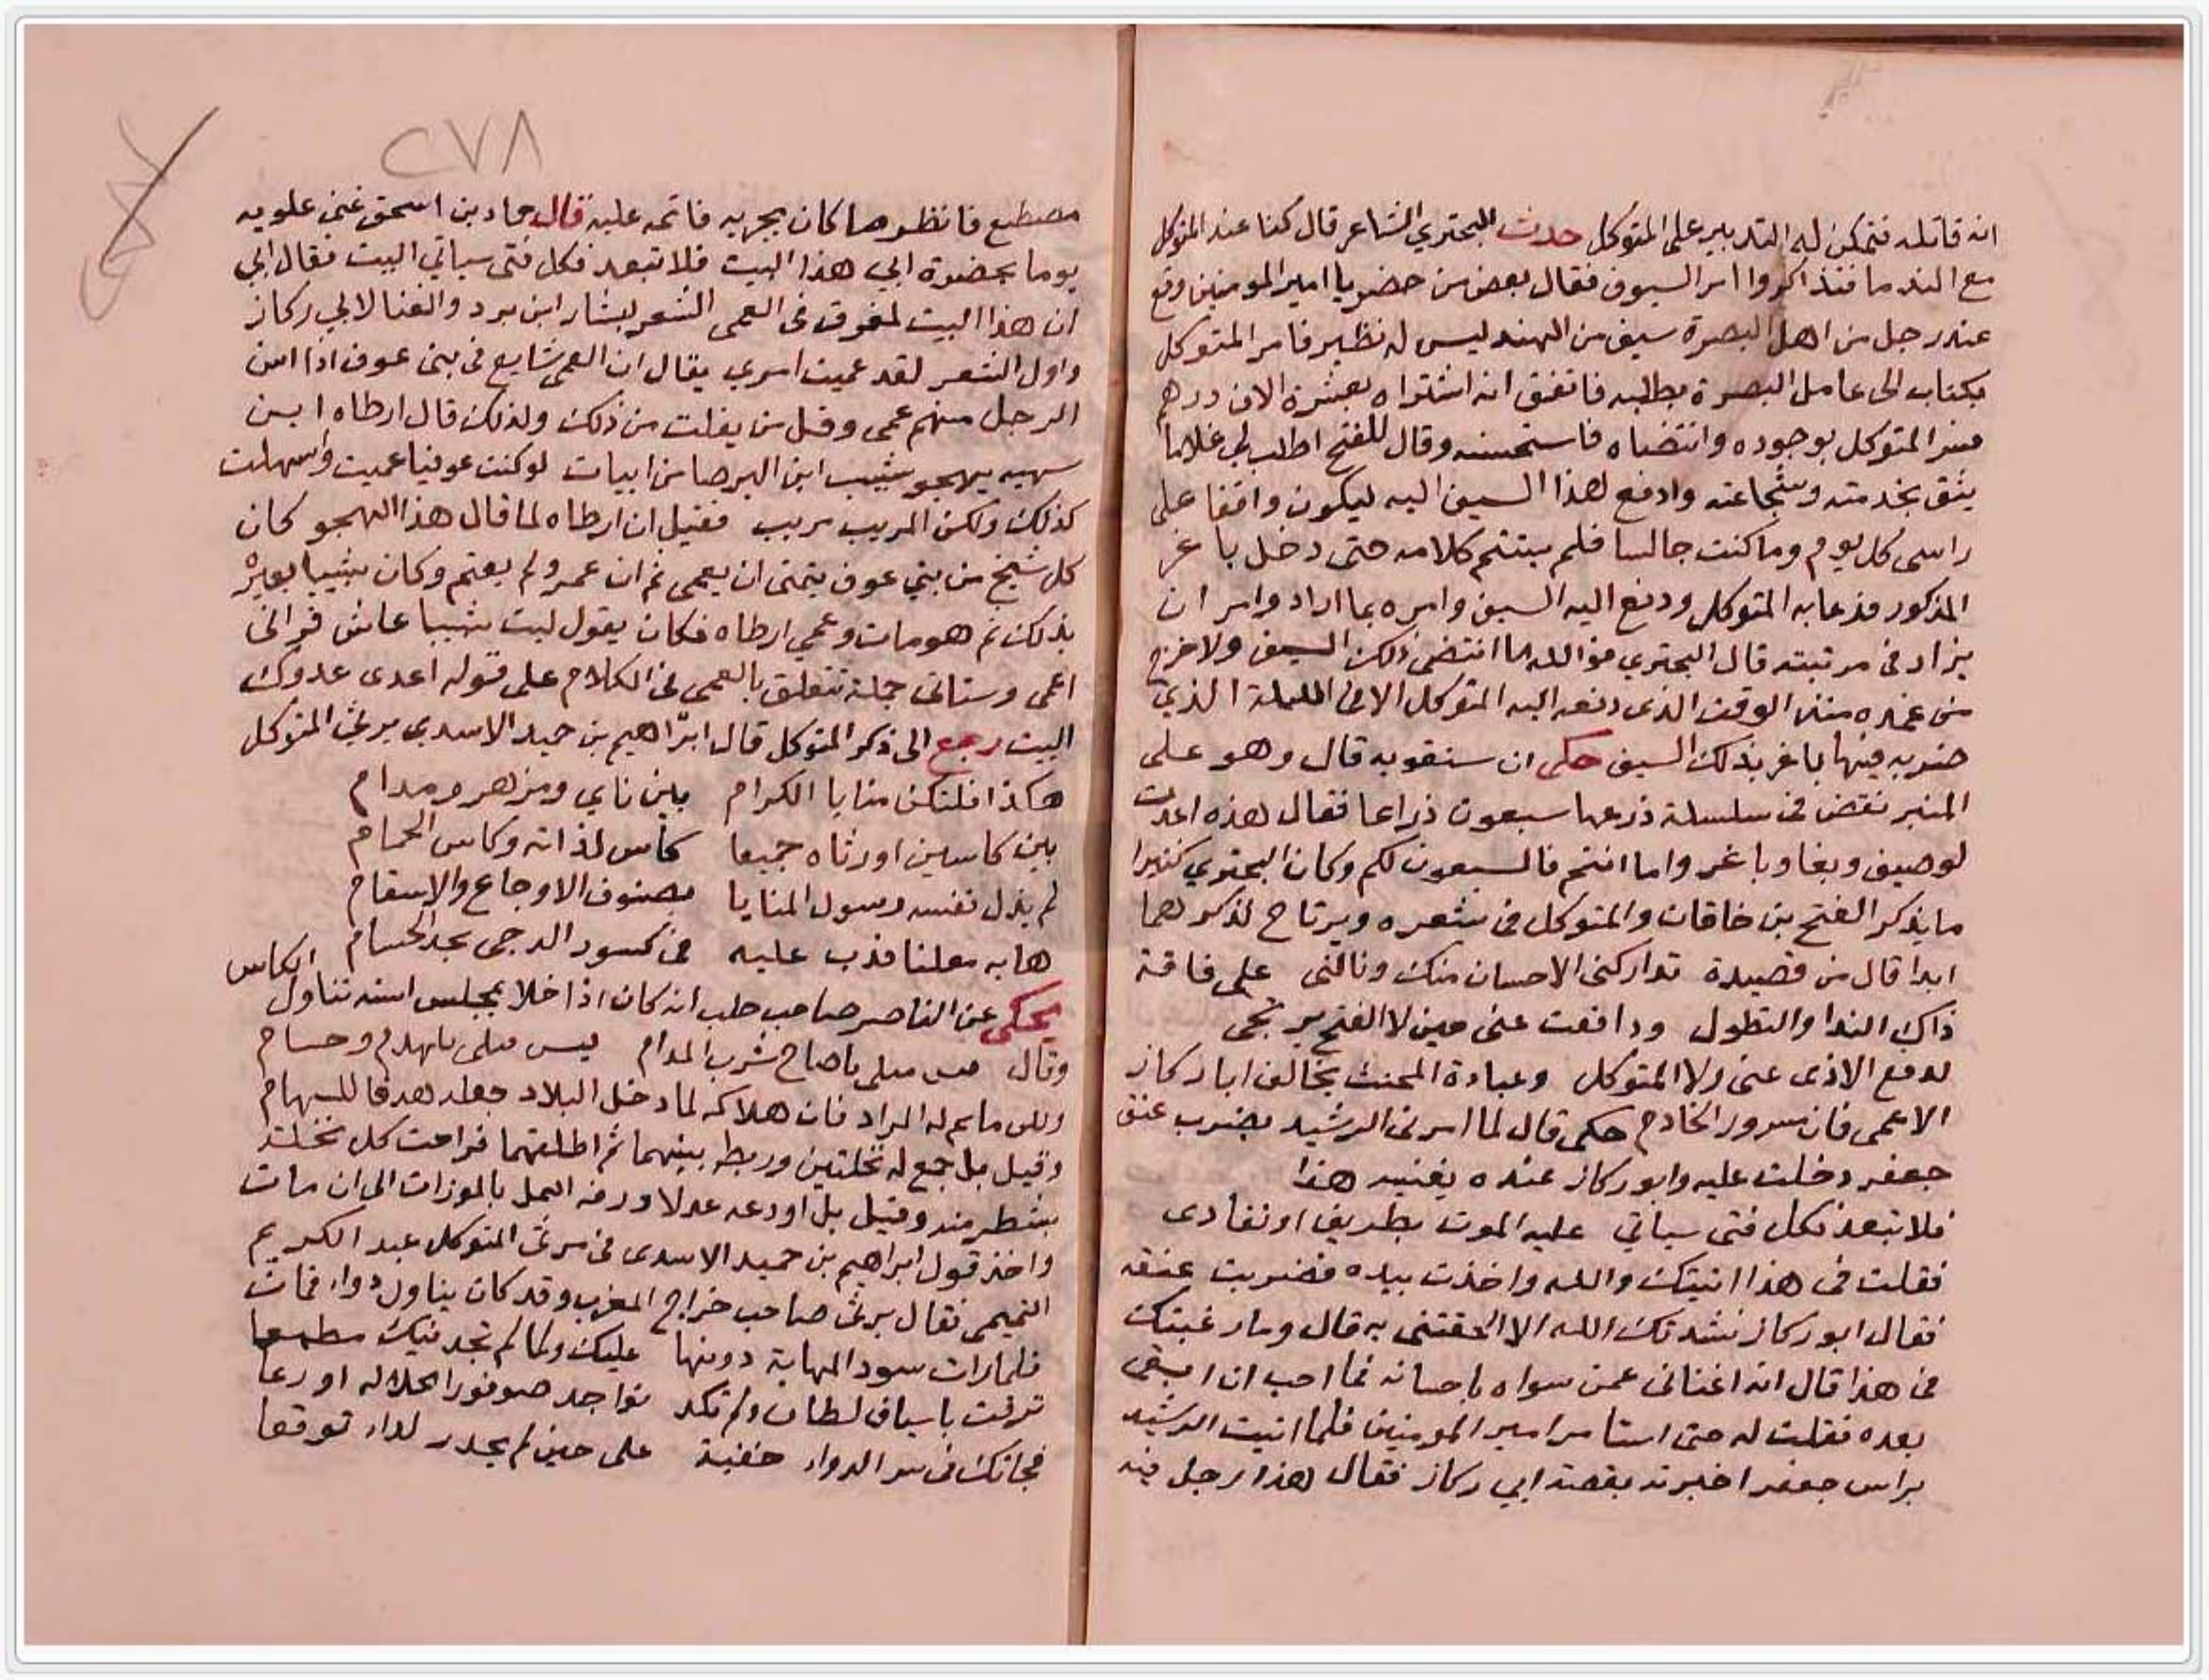 انه قاتله فتمكن له التدبير على المتوكل حدث البحتري الشاعر قال كنا عند المتوكل
مع الندما فتذاكروا امر السيوف فقال بعض من حضر يا امير المومنين وقع
عند رجل من اهل البصرة سيف من الهند ليس له نظير فامر المتوكل
بكتاب الى عامل البصرة يطلبه فاتفق انه اشتراه بعشرة الاف درهم
فسر المتوكل بوجوده وانتضاه فاستحسنه وقال للفتح اطلب لي غلاما
يثق بخدمته وشجاعته وادفع لهذا السيف اليه ليكون واقفا على
راسى كل يوم وما كنت جالسا فلم يستتم كلامه حتى دخل باغر
المذكور فدعا به المتوكل ودفع اليه السيف وامره بما اراد وامر ان
يزاد فى مرتبته قال البحتري فوالله ما انتضى ذلك السيف ولا خرج
من غمده منذ الوقت الذى دفعه اليه المتوكل الا فى الليلة الذي
ضربه فيها باغر بذلك السيف حكى ان سنقويه قال وهو على
المنبر نقض فى سلسلة ذرعها سبعون ذراعا فقال هذه اعدت
لوصيف وبغا وباغر واما انتم فالسبعون لكم وكان البحتري كثيرا
ما يذكر الفتح بن خاقان والمتوكل فى شعره ويرتاح لذكرهما
ابدا قال من قصيدة تداركنى الاحسان منك ونالنى على فاقة
ذاك الندا والتطول ودافعت عنى حين لا الفتح يرتجى
لدفع الاذى عنى ولا المتوكل وعبادة المخنث يخالف ابا ركاز
الاعمى فان مسرور الخادم حكى قال لما امرنى الرشيد بضرب عنق
جعفر دخلت عليه وابو ركاز عنده يغنيه هذا
فلا تبعد فكل فتى سياتي عليه الموت يطرق او يغادى
فقلت فى هذا اتيتك والله واخذت بيده فضربت عنقه
فقال ابو ركاز نشدتك الله الا الحقتنى به قال وما رغبتك
فى هذا قال انه اغنانى عمن سواه باحسانه فما احب ان ابقى
بعده فقلت له حتى استامر امير المومنين فلما اتيت الرشيد
براس جعفر اخبرته بقصة ابي ركاز فقال هذا رجل فيه
٢٧٨
مصطنع فانظر ما كان يجريه فاتمه عليه قال حماد بن اسحق غنى علويه
يوما بحضرة ابي هذا البيت فلا تبعد فكل فتى سياتي البيت فقال ابي
ان هذا البيت لمعرق فى العمى الشعر لبشار ابن برد والغنا لابي ركاز
واول الشعر لقد عميت اسري يقال ان العمى شايع فى بنى عوف اذا اسن
الرجل منهم عمى وقل من يفلت من ذلك ولذلك قال ارطاه ابن
سهيه يهجو شبيب ابن البرصا من ابيات لو كنت عوفيا عميت واسهلت
كذلك ولكن المريب مريب فقيل ان ارطاه لما قال هذا الهجو كان
كل شيخ من بني عوف يتمنى ان يعمى ثم ان عمر ولم يعتم وكان شبيبا يعيره
بذلك ثم هو مات وعمي ارطاه فكان يقول ليت شبيبا عاش فرانى
اعمى وستاتى جملة تتعلق بالعمى فى الكلام على قوله اعدى عدوك
البيت رجع الى ذكر المتوكل قال ابراهيم بن حميد الاسدي يرثي المتوكل
هكذا فلتكن منايا الكرام بين ناي ومزهر ومدام
بين كاسين اورثاه جميعا كاس لذاته وكاس الحمام
لم يذل نفسه رسول المنايا بصنوف الاوجاع والاسقام
هابه معلنا فدب عليه فى كسور الدجى بحد الحسام
يحكى عن الناصر صاحب حلب انه كان اذا خلا بمجلس انسه تناول الكاس
وقال ليس مثلى يا صاح شرب المدام ليس مثلى ما بهدم وحسام
ولكن ما تم له المراد فان هلاكه لما دخل البلاد جعله هدفا للسهام
وقيل بل جمع له نخلتين وربط بينهما ثم اطلقهما فراحت كل نخلة
بشطر منه وقيل بل اودعه عدلا ورفه العمل بالموزات الى ان مات
واخذ قول ابراهيم بن حميد الاسدى فى مرثى المتوكل عبد الكريم
التميمى فقال يرثى صاحب خراج المغرب وقد كان يناول دواء فمات
فلما رات سود المهابة دونها عليك ولما لم تجد فيك مطمعا
ترقت باسباب لطاف ولم تكد تواجه موفور الجلاله اورعا
فجاتك فى سر الدواء خفية على حين لم يحذر لداء توقعا